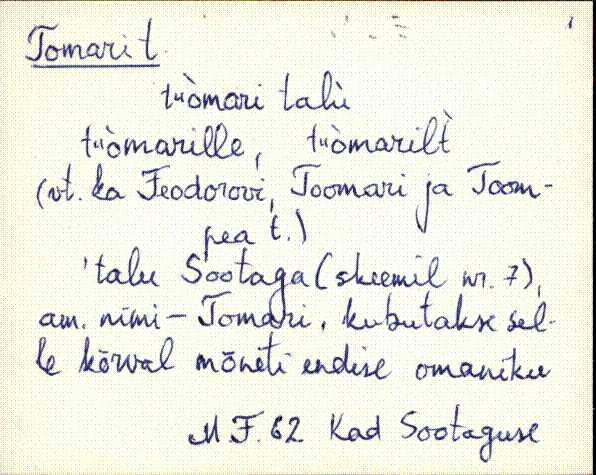 Tomari t.
tùomari talù
tùomarille, tùomarilt̀
(vt. ka Feodorovi, Toomari ja Toom-
pea t.)
'talu Sootaga (skeemil nr. 7),
am. nimi – Tomari, kubutakse sel-
le kõrval mõneti endise omaniku
M.F. 62 Kad Sootaguse